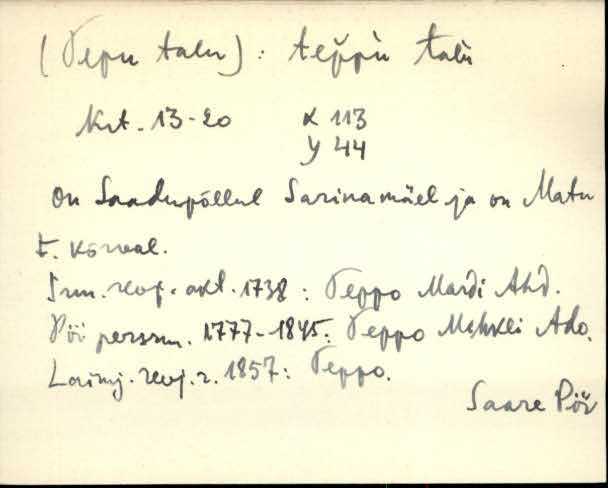 (Tepu talu): teppù talù
Krt. 13-20 x 113
y 44
on Saadupõllul Sarinamäel ja on Matu
t. kõrval.
rev. akt. 1738: Teppo Mardi Ahd.
Pöi persrm. 1777-1845: Teppo Mihkli Ado.
rev. r. 1857: Teppo.
Saare Pöi